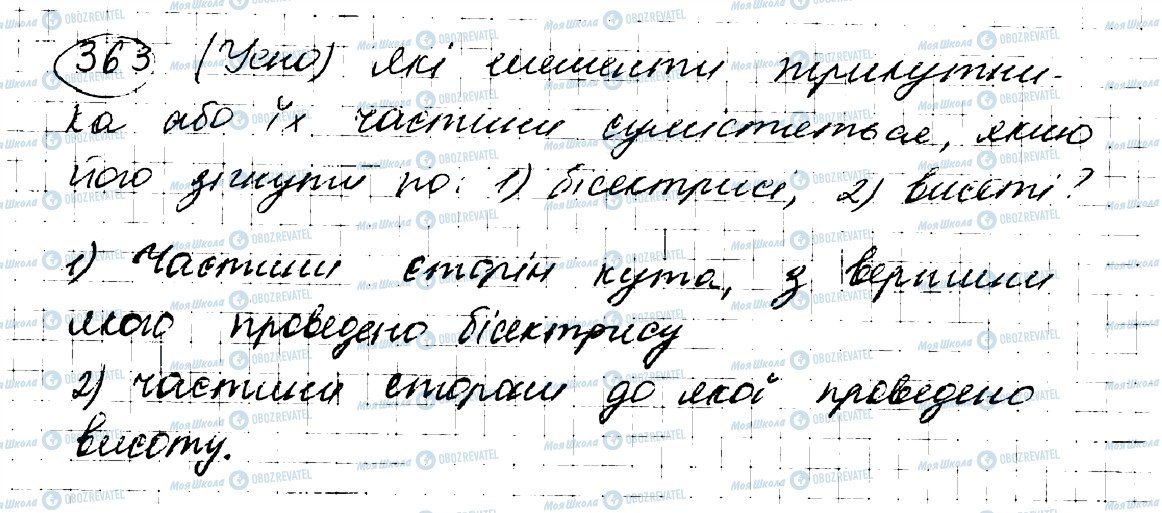 363 (Усно) які елементи трикутни-
ка або їх частини сумістяться, якщо
його зігнути по: 1) бісектрисі, 2) висоті?
1) Частини сторін кута, з вершини
якого проведено бісектрису
2) частини сторони до якої проведено
висоту.